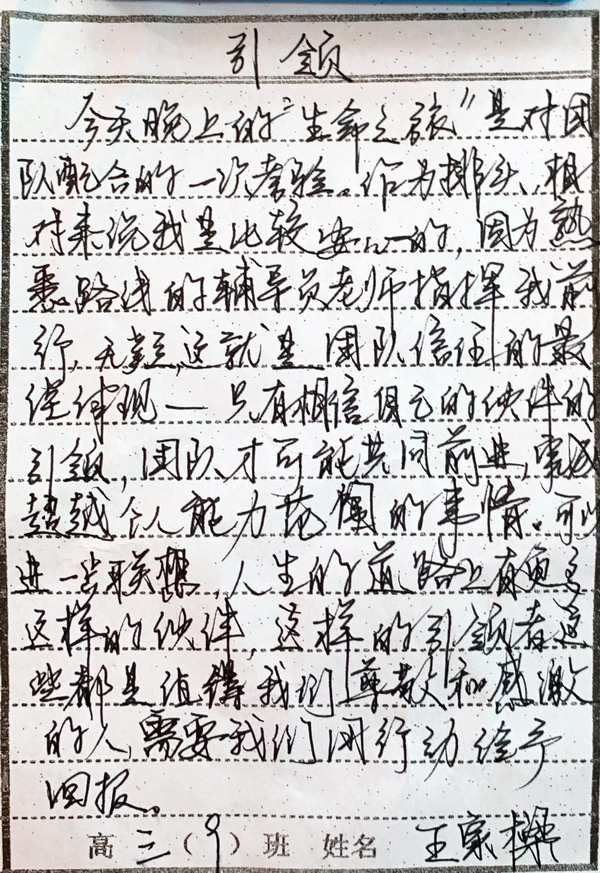 引领
今天晚上的“生命之旅”是对团
队配合的一次考验。作为排头、相
对来说我是比较安心的,因为熟
悉路线的辅导员老师指挥我前
行,无疑,这就是团队信任的最
佳体现—只有相信自己的伙伴的
引领,团队才可能共同前进,完成
超越个人能力范围的事情。可以
进一步联想,人生的道路上有更多
这样的伙伴,这样的引领者这
些都是值得我们尊敬和感激
的人,需要我们用行动给予
回报。
高三(9)班 姓名 王家